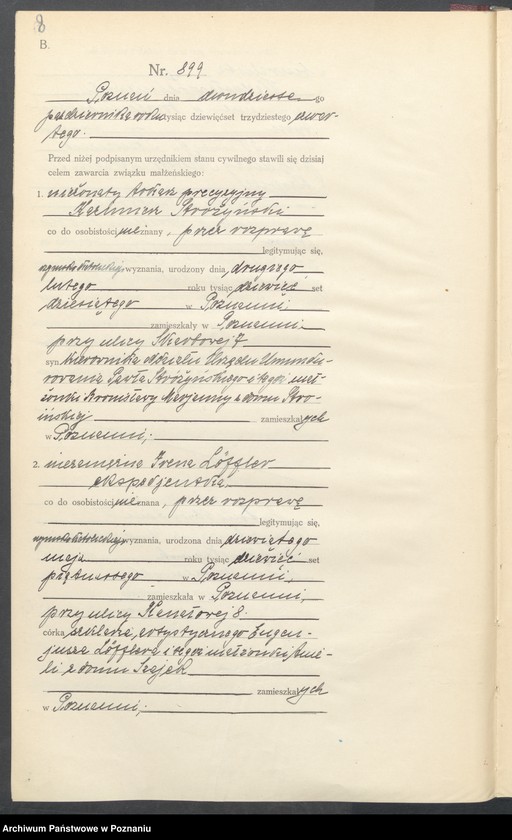 8
B.
Nr. 899
Poznań dnia dwudziestego
października roku tysiąc dziewięćset trzydziestego czwar-
tego.
Przed niżej podpisanym urzędnikiem stanu cywilnego stawili się dzisiaj
celem zawarcia związku małżeńskiego:
1. nieżonaty tokarz precyzyjny
Kazimierz Stróżyński
co do osobistości nieznany, przez rozprawę
legitymując się,
rzymskokatolickiego wyznania, urodzony dnia drugiego
lutego roku tysiąc dziewięć set
dziesiątego w Poznaniu,
zamieszkały w Poznaniu
przy ulicy 7
syn kierownika oddziału Urzędu Umundu-
rowania Pawła Stróżyńskiego i tegoż mał-
żonki Bronisławy Marjanny z domu
zamieszkałych
w Poznaniu;
2. niezamężna Irena Löffler
ekspedjentka
co do osobistości nieznana, przez rozprawę
legitymując się,
rzymskokatolickiego wyznania, urodzona dnia dziewiątego
maja roku tysiąc dziewięć set
piętnastego w Poznaniu,
zamieszkała w Poznaniu,
przy ulicy Kanałowej 8.
córka artystycznego Eugen-
jusza Löfflera i tegoż małżonki Ame-
li z domu Szajek
zamieszkałych
w Poznaniu;
Archiwum Państwowe w Poznaniu